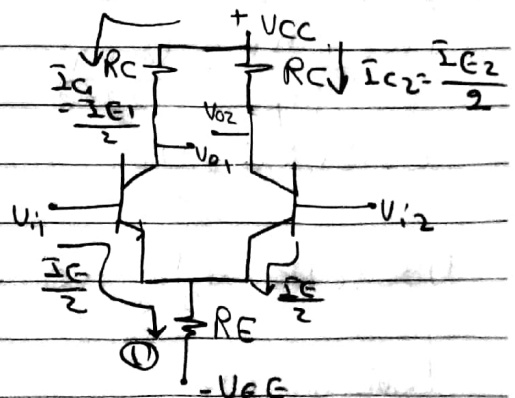 + VCC
RC
RC
IC2 = IE2/2
IC1 = IE1/2
Vo2
Vo1
Vi1
Vi2
IE/2
IE/2
RE
1
-VEE